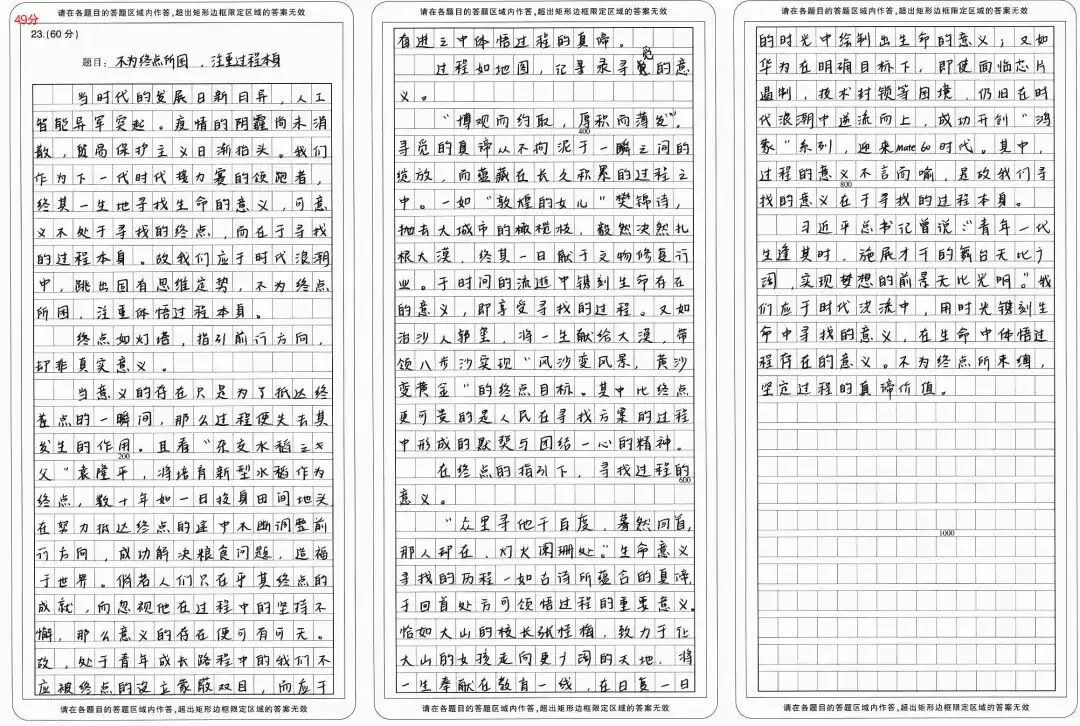 请在各题目的答题区域内作答,超出矩形边框限定区域的答案无效
49分
23.(60分)
题目：不为终点所困，注重过程本身
当时代的发展日新月异，人工
智能异军突起。疫情的阴霾尚未消
散，贸易保护主义日渐抬头。我们
作为下一代时代接力赛的领跑者，
终其一生地寻找生命的意义，可意
义不处于寻找的终点，而在于寻找
的过程本身。故我们应于时代浪潮
中，跳出固有思维定势，不为终点
所困，注重体悟过程本身。
终点如灯塔，指引前行方向，
却非真实意义。
当意义的存在只是为了抵达终
点的一瞬间，那么过程便失去其
发生的作用。且看“杂交水稻之
200
父”袁隆平，将培育新型水稻作为
终点，数十年如一日投身田间地头，
在努力抵达终点的途中不断调整前
行方向，成功解决粮食问题，造福
于世界。倘若人们只在乎其终点的
成就，而忽视他在过程中的坚持不
懈，那么意义的存在便可有可无。
故，处于青年成长路程中的我们不
应被终点的设立蒙蔽双目，而应于
请在各题目的答题区域内作答,超出矩形边框限定区域的答案无效
请在各题目的答题区域内作答,超出矩形边框限定区域的答案无效
奋进之中体悟过程的真谛。
过程如地图，记录寻觅的意
义。
“博观而约取，厚积而薄发”。
400
寻觅的真谛从不拘泥于一瞬之间的
绽放，而蕴藏在长久积累的过程之
中。一如“敦煌的女儿”樊锦诗，
抛去大城市的橄榄枝，毅然决然扎
根大漠，终其一日献于文物修复行
业。于时间的流逝中镌刻生命存在
的意义，即享受寻找的过程。又如
治沙人郭玺，将一生献给大漠，带
领八步沙实现“风沙变风景，黄沙
变黄金”的终点目标。其中比终点
更可贵的是人民在寻找方案的过程
中形成的默契与团结一心的精神。
在终点的指引下，寻找过程的
600
意义。
“众里寻他千百度，蓦然回首，
那人却在，灯火阑珊处。”生命意义
寻找的历程一如古诗所蕴含的真谛，
于回首处方可领悟过程的重要意义。
恰如大山的校长张桂梅，致力于让
大山的女孩走向更广阔的天地，将
一生奉献在教育一线，在日复一日
请在各题目的答题区域内作答,超出矩形边框限定区域的答案无效
请在各题目的答题区域内作答,超出矩形边框限定区域的答案无效
的时光中绘制出生命的意义；又如
华为在明确目标下，即使面临芯片
遏制，技术封锁等困境，仍旧在时
代浪潮中逆流而上，成功开创“鸿
蒙”系列，迎来mate60时代。其中，
过程的意义不言而喻，是故我们寻
800
找的意义在于寻找的过程本身。
习近平总书记曾说：“青年一代
生逢其时，施展才干的舞台无比广
阔，实现梦想的前景无比光明。”我
们应于时代洪流中，用时光镌刻生
命中寻找的意义，在生命中体悟过
程存在的意义。不为终点所束缚，
坚定过程的真谛价值。
1000
请在各题目的答题区域内作答,超出矩形边框限定区域的答案无效